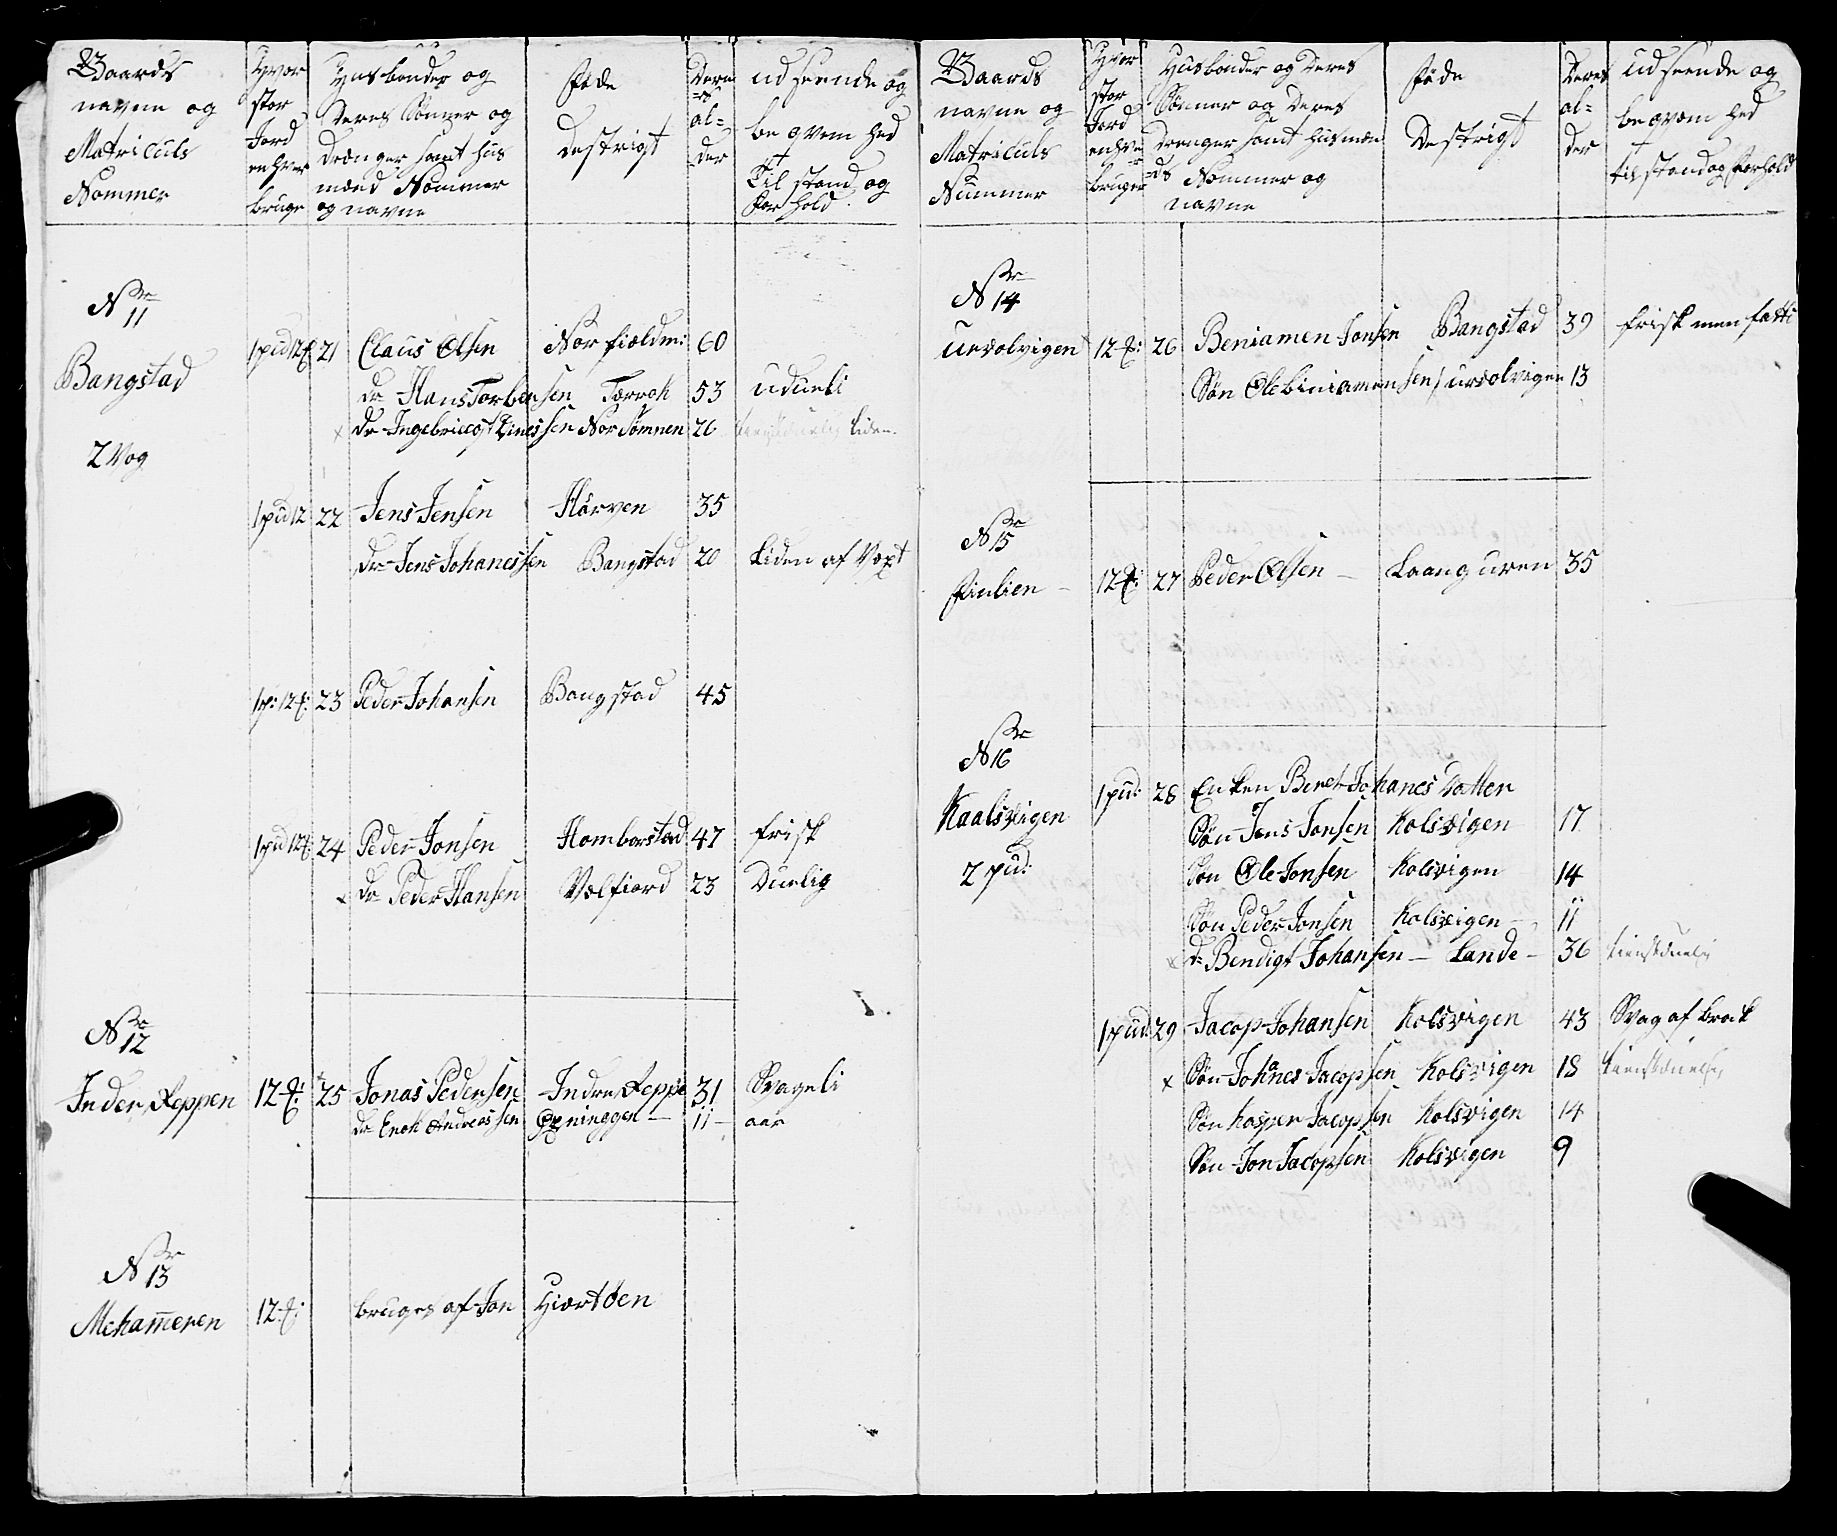 Gaards navne og Matriculs Nommer | Hvor stor Jord enhver bruge | Husbonder og Deres Sønner og Drænger samt hus mænd Nommer og navne | føde Destrigt | Deres alder | udseende og beqvem hed Til stand og for hold
No 11
Bangstad
2 Vog
1 pud 12 21 Claus Olsen Nor fieldm: 60
dr Hans Torbensen Torroh 53 udueli
x dr Ingebricgt Sinessen Nor Sømnen 26 liden
1 pud 12 22 Jens Jensen Hørven 35
dr Jens Johanessen Bangstad 20 liden af Vext
1 p: 12 23 Peder Johansen Bangstad 45
1 pud 12 24 Peder Jonsen Homborstad 47 frisk
x dr Peder Hansen Velfiord 23 Duelig
No 12
Inder Reppen 12 25 Jonas Pedersen Indre Reppe 31 Svageli
dr Enok Andreassen 11 aar
No 13
Mehammeren 12 bruges af Jon Hiortøen
Gaards navne og Matriculs Nummer | Hvor stor Jord enhver bruger | Husbonder og Deres Sønner og Deres Drenger samt husmænds Nommer og navne | føde Destrigt | Deres alder | udseende og beqvem hed til stand og forhold
No 14
Urvolvigen 12 26 Beniamen Jonsen Bangstad 39 frisk men fatti
Søn Ole Biniamensen urvolvigen 13
No 15
12 27 Peder Olsen – Laanguren 35
No 16
Kaalsvigen
2 pud:
1 pud: 28 Enken Beret Johanes Datter
Søn Jens Jonsen Kolsvigen 17
Søn Ole Jonsen Kolsvigen 14
Søn Peder Jonsen Kolsvigen – 11
x dr Bendigt Johansen – Lande – 36 tienstduelig
1 pud 29 Jacop Johansen Kolsvigen 43 Svag af brok
x Søn Johanes Jacopsen Kolsvigen 18 tienstduelig
Søn Kasper Jacopsen Kolsvigen 14
Søn Jon Jacopsen Kolsvigen 9